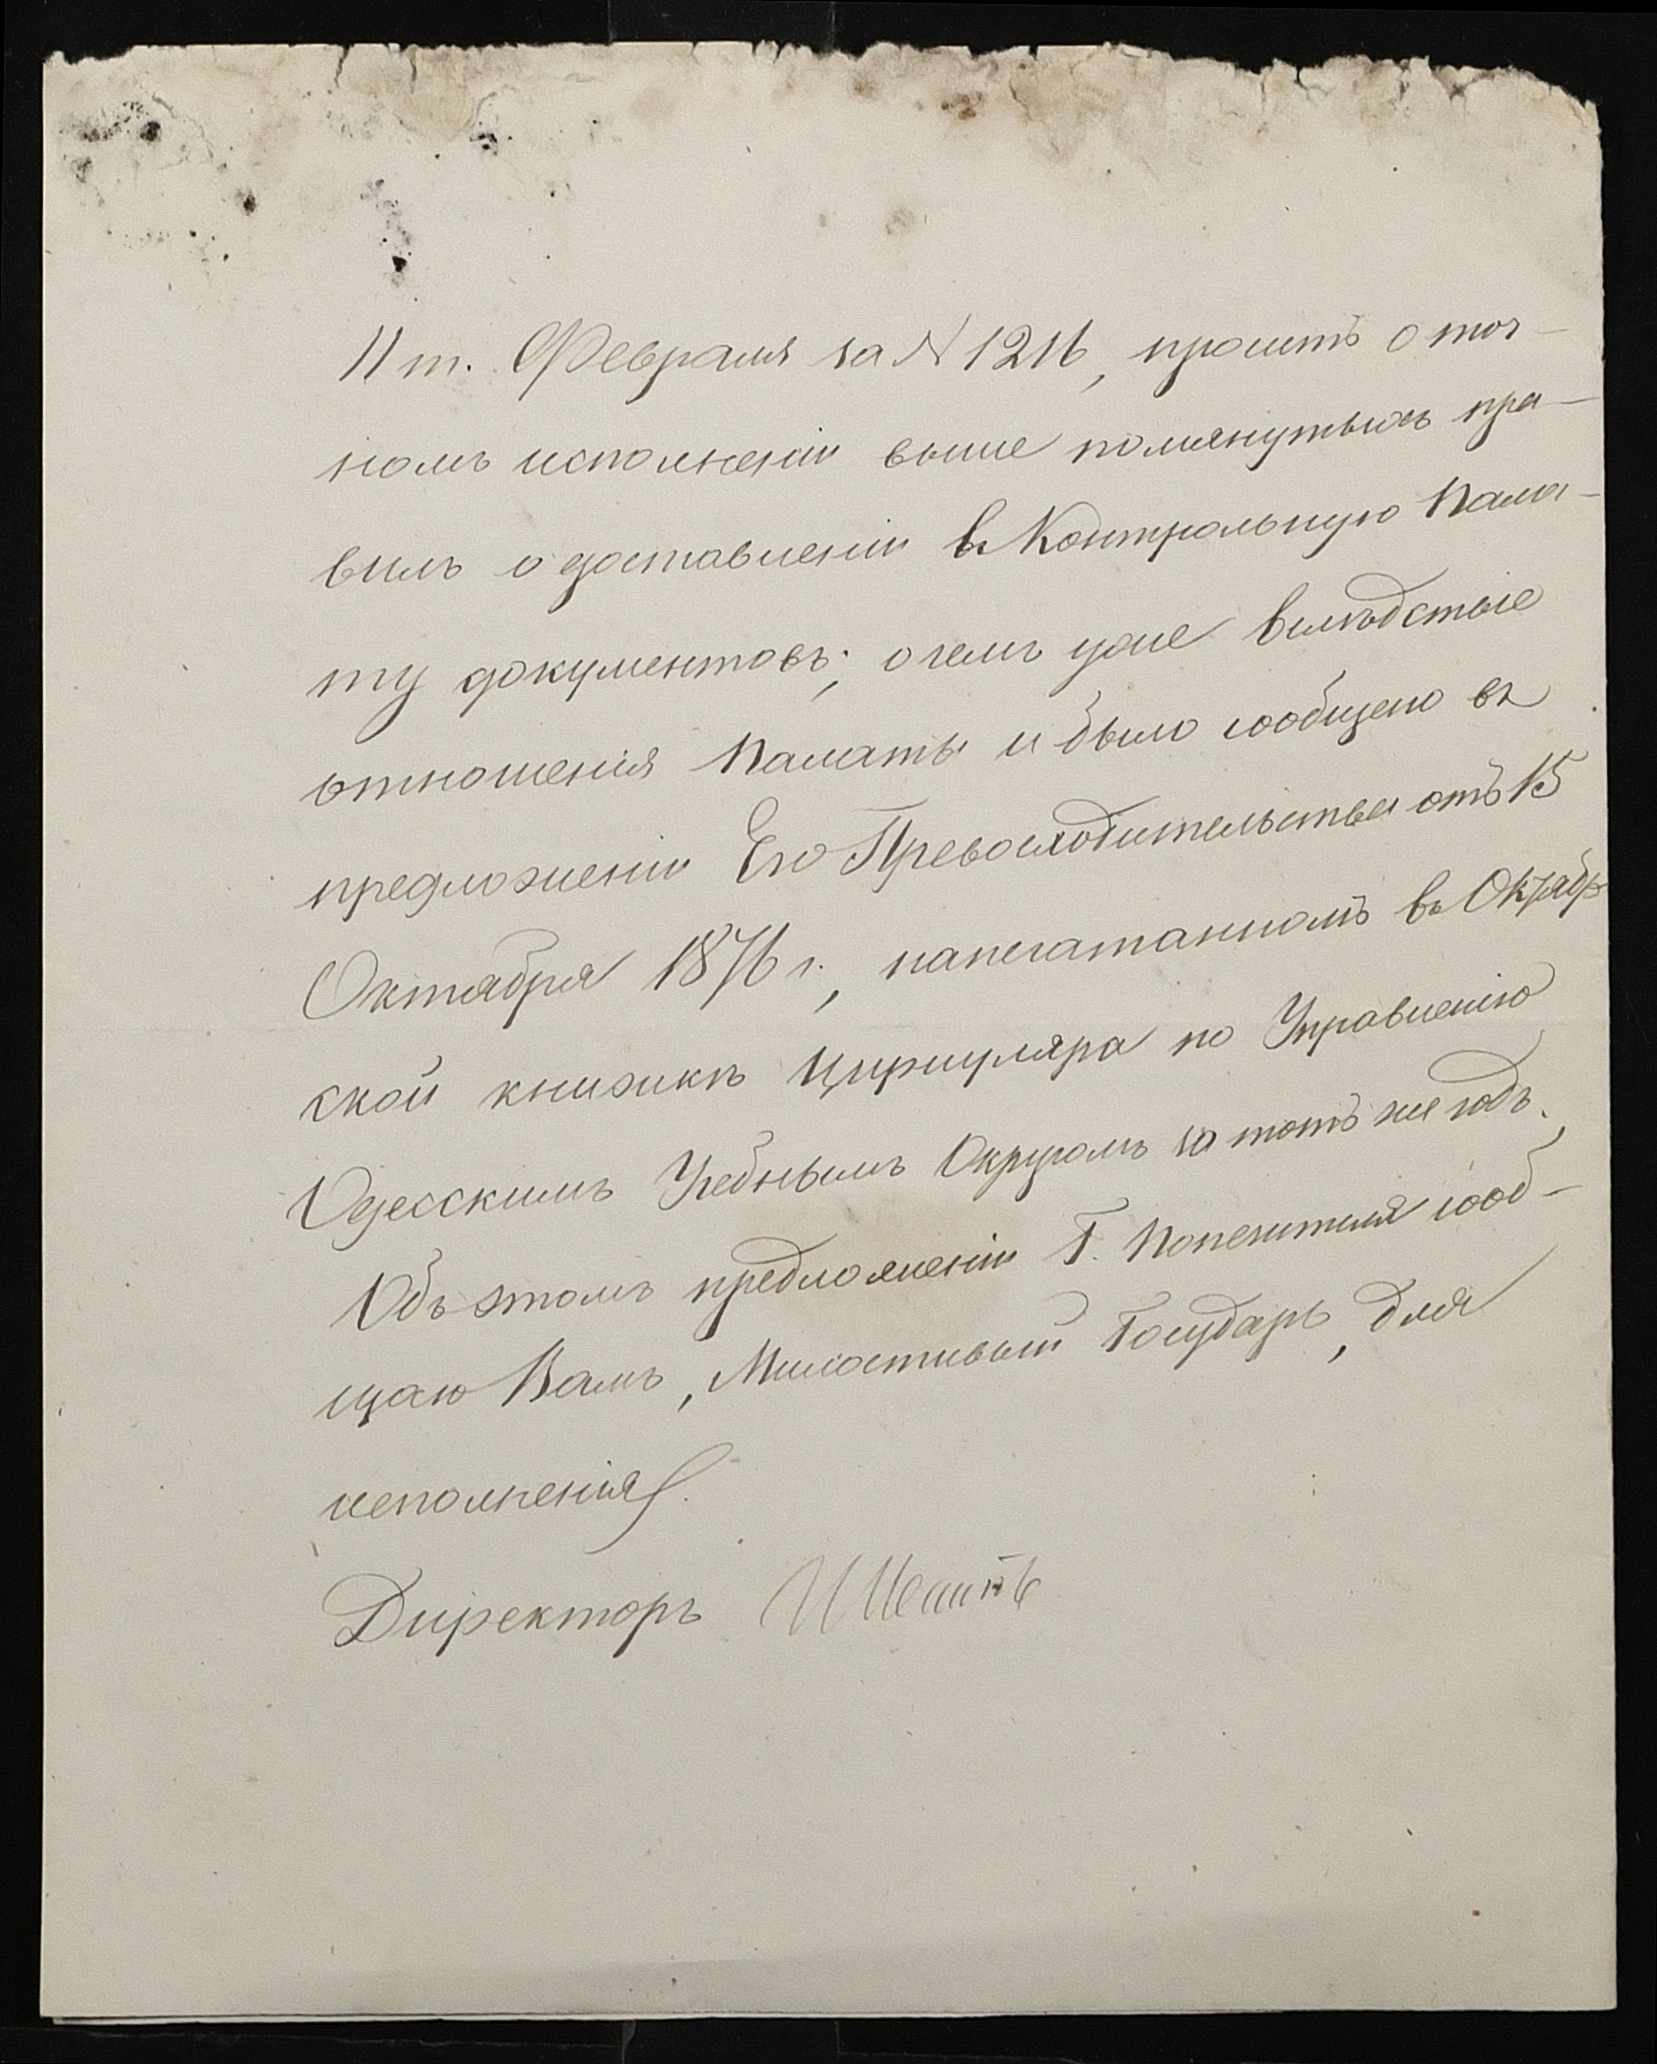 11 т. Февраля за № 1216, проситъ о точ-
номъ исполненіи выше помянутыхъ пра-
вилъ о доставленіи въ Контрольную Пала-
ту документовъ; о чемъ уже вслѣдствіе
отношенія Палаты и было сообщено въ
предложеніи Его Превосходительства отъ 15
Октября 1876 г., напечатанномъ въ Октябр
ской книжкѣ Циркуляра по Управленію
Одесскимъ Учебнымъ Округомъ за тотъ же годъ.
Объ этомъ предложеніи Г. Попечителя сооб-
щаю Вамъ, Милостивый Государь, для
исполненія.
Директоръ